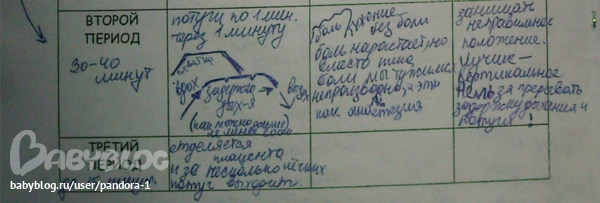 ВТОРОЙ
ПЕРИОД
30-40
минут
потуги по 1 мин.
через 1 минуту
схватка
вдох
задержка
дых-я
выдох
(как можно дольше)
не менее
без боли
боль нарастает, но
вместо пика
боли мы тужимся
непроизвольно, и это
как анестезия
занимать
неправильное
положение.
Лучше —
вертикальное
Нельзя прерывать
задержку дыхания и
потуги!
ТРЕТИЙ
ПЕРИОД
отделяется
плацента
и за несколько лёгких
потуг выходит.
BABYBLOG
babyblog.ru/user/pandora-1